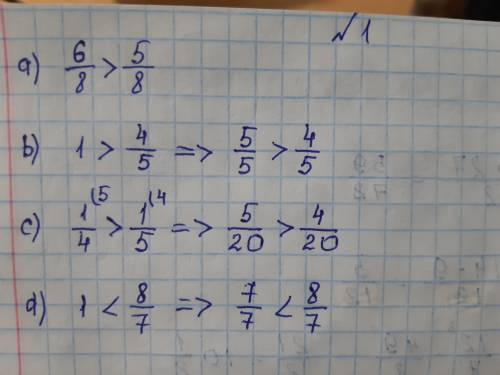 №1
a) 6/8 > 5/8
b) 1 > 4/5 => 5/5 > 4/5
c) 1/4 (5 > 1/5 (4 => 5/20 > 4/20
d) 1 < 8/7 => 7/7 < 8/7